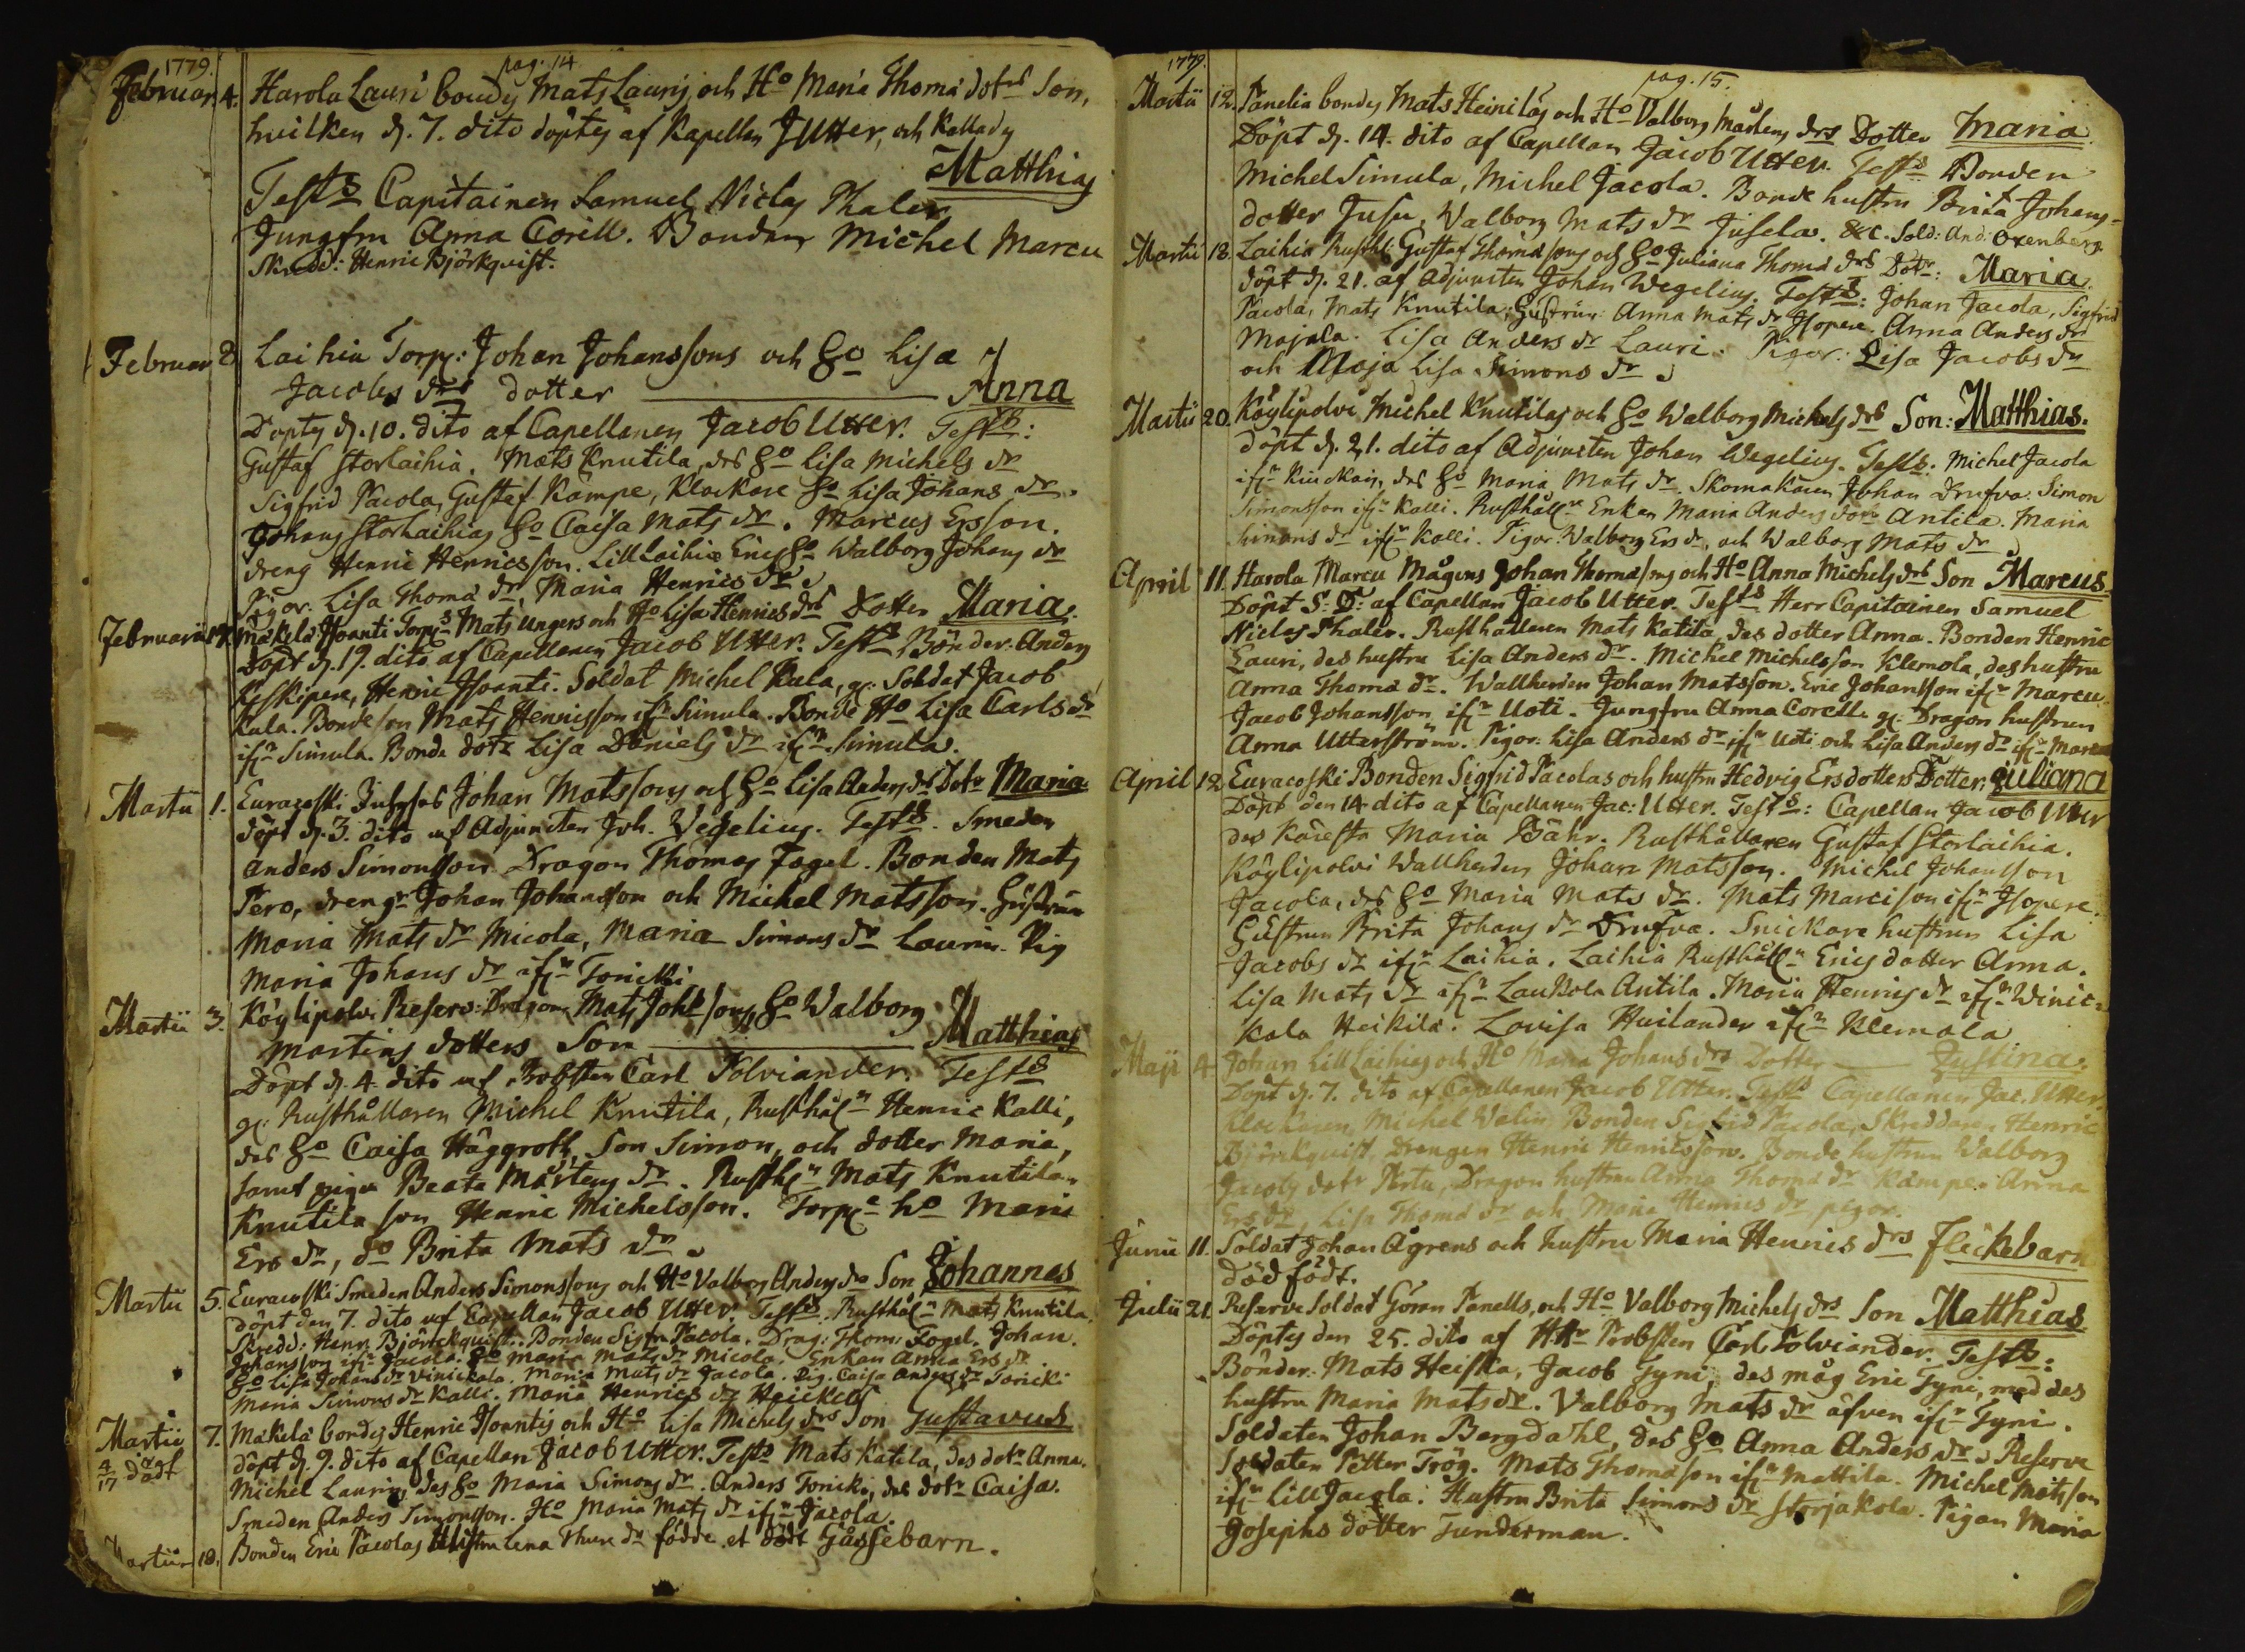 1779.
pag. 14
Februar. 4. Harola Lauri bondes Mats Lauris och Ho Maria Thomæ dotrs Son,
hvilken d. 7. dito döptes af Kapellan J Utter, och kallades
Matthias
Tests Capitainen Samuel Niclas Thaler
Jungfru Anna Corell. Bonden Michel Marcu
Skredd: Henric Björkqvist.
Februar 8 Laihia Torp: Johan Johanssons och Ho Lisa
Jacobs drs dotter Anna
Döptes d. 10. dito af Capellanen Jacob Utter. Tests:
Gustaf Storlaihia. Mats Knutila, des Ho Lisa Michels dr
Sigfrid Pacola, Gustaf Kämpe, Klockare Ho Lisa Johans dr.
Johans Storlaihias Ho Caisa Mats dr. Marcus Ersson.
dreng Henric Henricsson. Lill Laihia Erics Ho Walborg Johans dr
Pigor: Lisa Thomæ dr Maria Henrics dr
Februarii Mäkelä Isoanti Torps Mats Ungers och Ho Lisa Henrics drs Dotter Maria.
Döpt d. 19. dito af Capellanen Jacob Utter. Tests Bönder: Anders
Keskipere, Henric Isoanti. Soldat Michel Kula, g: Soldat Jacob
Kula. Bonde son Mats Henricsson ifrn Simula. Bonde Ho Lisa Carls dr
ifrn Simula. Bonde dotr Lisa Daniels dr ifrn Simula.
Martii 1. Euracoski Johan Matssons och Ho Lisa Anders drs Dotr Maria
döpt d. 3. dito af Adjuncten Joh. Wegelius. Tests. Smeden
Anders Simonsson Dragon Thomas Fogel. Bonden Mats
Pero, drengr Johan Johansson och Michel Matsson. Hustrun
Maria Mats dr Micola, Maria Simons dr Laurin. Pig
Maria Johans dr ifrn Toricki
Martii 3. Köylipolvi Reserv: Dragon Mats Joh: sons Ho Walborg
Martins dotters Son Matthias
Döpt d. 4. dito af Probsten Carl Polviander. Tests
g: Rusthållaren Michel Knutila, Rusthåln Henric Kalli,
des Ho Caisa Häggroth, Son Simon, och dotter Maria,
samt pigan Beata Mårtens dr. Rusthn Mats Knutila
Knutila son Henric Michelsson. Torp: ho Maria
Ers dr, do Brita Mats dr
Martii 5. Euracoski Smeden Anders Simonssons och Ho Valborg Anders drs Son Johannes
döpt den 7. dito af Capellan Jacob Utter. Tests Rusthåln Mats Knutila
Skredd: Henr: Björckquist. Bonden Sigfr: Pacola. Drag: Thom: Fogel. Johan
Johansson ifrn Jacola. Ho Maria Mats dr Micola. Enkan Anna Ers dr
Ho Lisa Johans dr Vinickala. Maria Mats dr Jacola. Pig. Caisa Anders dr Toricki
Maria Simons dr Kalli. Maria Henrics dr Heickelä
Martii 7. Mäkelä bondes Henric Isoantis och Ho Lisa Michels drs Son Gustavus
4/17 död döpt d. 9. dito af Capellan Jacob Utter. Tests Mats Katila, des dotr Anna.
Michel Laurin, des Ho Maria Simons dr. Anders Toricki, des dotr Caisa.
Smeden Anders Simonsson. Ho Maria Mats dr ifrn Jacola.
Martii 10. Bonden Eric Pacolas Hustru Lena Thure dr födde et dödt Gåssebarn.
1779.
pag. 15.
Martii 12. Panelia bondes Mats Heinilås och Ho Valborg Mårtens drs Dotter Maria
Döpt d. 14. dito af Capellan Jacob Utter. Tests Bonden
Michel Simula, Michel Jacola. Bonde hustru Brita Johans-
dotter Jusu, Valborg Mats dr Jusela. &c. Sold: And: Oxenberg.
Martii 18. Laihia Rusth: Gustaf Thomæsons och Ho Juliana Thomæ drs Dotr: Maria.
döpt d. 21. af Adjuncten Johan Wegelius. Tests: Johan Jacola, Sigfrid
Pacola, Mats Knutila, Hustrur Anna Mats dr Isopere. Anna Anders dr
Majala. Lisa Anders dr Lauri. Pigor: Lisa Jacobs dr
och Maja Lisa Simons dr
Martii 20. Köylipolvi Michel Knutilas och Ho Walborg Michels drs Son: Matthias.
döpt d. 21. dito af Adjuncten Johan Wegelius. Tests: Michel Jacola
ifrn des Ho Maria Mats dr. Skomakaren Johan Drufva. Simon
Simonsson ifrn Kalli. Rusthålln Enkan Maria Anders dotr Antila. Maria
Simons dr ifrn Kalli. Pigor Walborg Ers dr, och Walborg Mats dr
April 11. Harola Marcu Mågens Johan Thomæsons och Ho Anna Michels drs Son Marcus
Döpt S: D: af Capellan Jacob Utter. Tests Herr Capitainen Samuel
Niclas Thaler. Rusthållaren Mats Katila, des dotter Anna. Bonden Henric
Lauri, des hustru Lisa Anders dr. Michel Michelsson Klemola, des hustru
Anna Thomæ dr. Wallherden Johan Matsson. Eric Johansson ifrn Marcu
Jacob Johansson ifrn Uoti. Jungfru Anna Corell. g: Dragon hustrun
Anna Utterström. Pigor: Lisa Anders dr ifrn Uoti och Lisa Anders dr ifrn Marcu
April 12 Euracoski Bonden Sigfrid Pacolas och hustru Hedvig Ersdotters Dotter: Juliana
Döpt den 14. dito af Capellanen Jac: Utter. Tests: Capellan Jacob Utter
des Käresta Maria Bähr. Rusthållaren Gustaf Storlaihia.
Köylipolvi Wallherden Johan Matsson. Michel Johansson
Jacola, des Ho Maria Mats dr. Mats Marcison ifrn Isopere.
Hustrun Brita Johans dr Drufva. Snickare hustrun Lisa
Jacobs dr ifrn Laihia. Laihia Rusthålln Erics dotter Anna.
Lisa Mats dr ifrn Laukola Antila. Maria Henrics dr ifrn Winic-
kala Heikilä. Lovisa Huilander ifrn Klemola
Maji 4 Johan Lill Laihias och Ho Maria Johans drs Dotter Justina.
Döpt d. 7. dito af Capellanen Jacob Utter. Tests Capellanen Jac. Utter.
Klockaren, Michel Valin, Bonden Sigfrid Pacola, Skreddaren Henric
Björckquist, Drengen Henric Henricsson. Bonde hustrun Walborg
Jacobs dotr Perta, Dragon hustrun Anna Thomæ dr Kämpe. Anna
Ers dr, Lisa Thomæ dr och Maria Henrics dr pigor.
Junii 11. Soldat Johan Ågrens och hustru Maria Henrics drs flickebarn
död född.
Julii 21. Reserve Soldat Göran Panells, och Ho Valborg Michels drs Son Matthias
Döptes den 25. dito af H:Hr Probsten Carl Polviander. Tests:
Bönder: Mats Heiska, Jacob Tyni, des måg Eric Tyni, med des
hustru Maria Mats dr. Valborg Mats dr äfven ifrn Tyni.
Soldaten Johan Bergdahl, des Ho Anna Anders dr. Reserve
Soldaten Petter Trög. Mats Thomæson ifrn Mattila. Michel Matsson
ifrn Lill Jacola. Hustru Brita Simons dr Storjakola. Pigan Maria
Josephs dotter Tunderman.